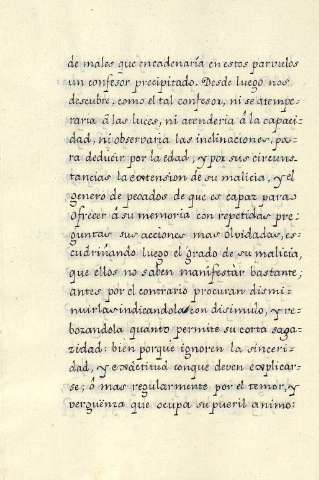 de males que encadenaría en estos parvulos
un confesor precipitado. Desde luego nos
descubre, como el tal confesor, ni se atempe-
raria á las luces, ni atenderia á la capaci-
dad, ni observaria las inclinaciones, pa-
ra deducir por la edad, y por sus circuns-
tancias la extension de su malicia, y el
genero de pecados de que es capaz para
ofrecer á su memoria con repetidas pre-
guntas sus acciones mas olvidadas, es-
cudriñando luego el grado de su malicia,
que ellos no saben manifestár bastante;
antes por el contrario procuran dismi-
nuirlas indicandolas con disimulo, y re-
bozandola quanto permite su corta saga-
zidad: bien porque ignoren la sinceri-
dad, y exactitud conque deven explicar-
se; ó mas regularmente por el temor, y
vergüenza que ocupa su pueril animo: